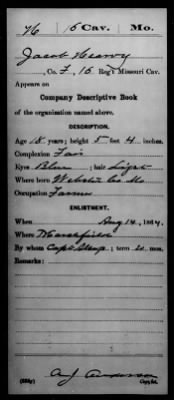 H | 15 Cav. | Mo.
Jacob Henry
, Co. F, 15 Reg't Missouri Cav.
Appears on
Company Descriptive Book
of the organization named above.
DESCRIPTION.
Age 18 years; height 5 feet 4 inches.
Complexion Fair
Eyes Blue; hair Light
Where born Webster Co Mo
Occupation Farmer
ENLISTMENT.
When Aug 14, 1864.
Where Marshfield
By whom Capt; term 20 mos.
Remarks:
Copyist.